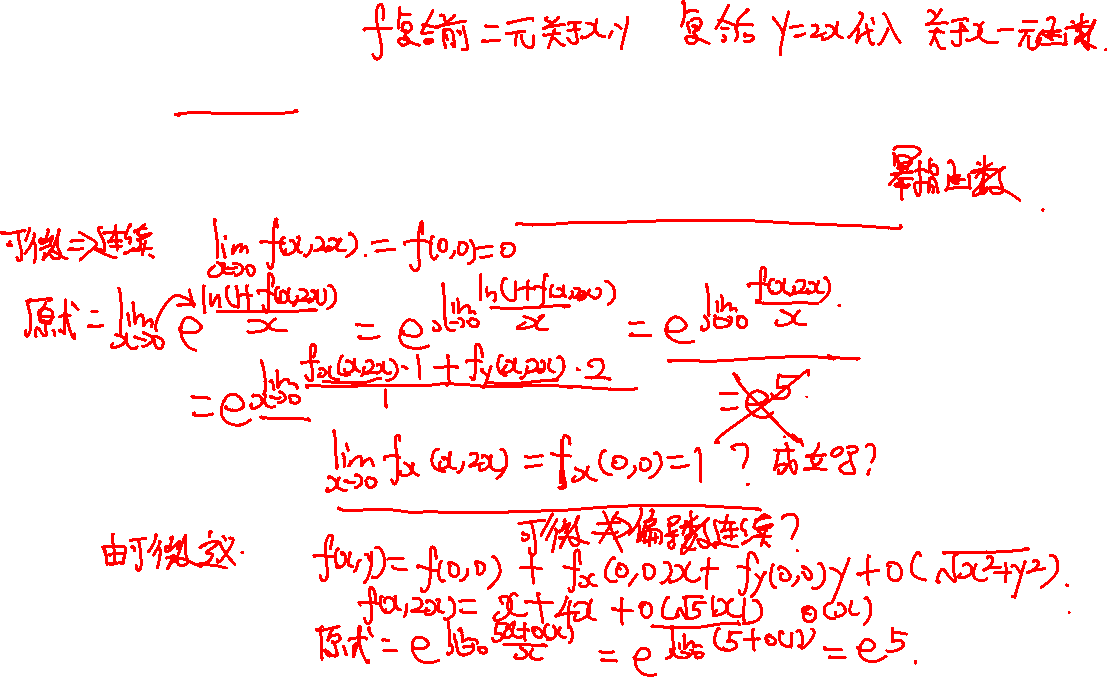 f复合前二元关于x,y 复合后 y=2x代入 关于x一元函数.
幂指函数.
可微⇒连续 lim_{x→0} f(x,2x).=f(0,0)=0
原式=lim_{x→0} e^{ln(1+f(x,2x))/x} = e^{lim_{x→0} ln(1+f(x,2x))/x} = e^{lim_{x→0} f(x,2x)/x}.
=e^{lim_{x→0} (f_x(x,2x)·1+f_y(x,2x)·2)/1} =e^5.
lim_{x→0} f_x(x,2x)=f_x(0,0)=1 ? 成立吗?
可微⇏偏导数连续?
由可微定义. f(x,y)=f(0,0)+f_x(0,0)x+f_y(0,0)y+o(√(x²+y²)).
f(x,2x)=x+4x+o(√5|x|) o(x)
原式=e^{lim_{x→0} (5x+o(x))/x} =e^{lim_{x→0}(5+o(1))}=e^5.